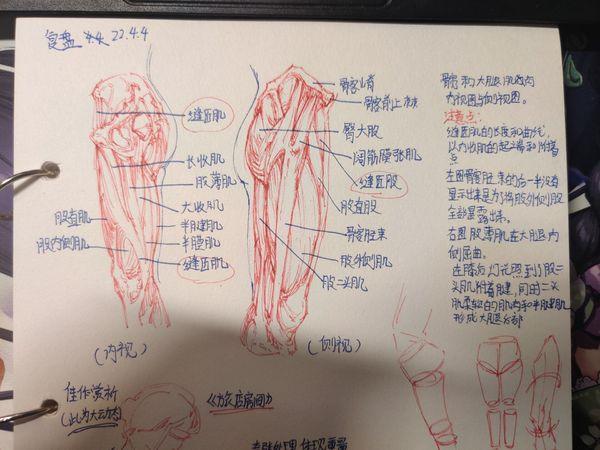 复盘 4.4 22.4.4
缝匠肌
长收肌
股薄肌
大收肌
股直肌
半腱肌
股内侧肌
半膜肌
缝匠肌
(内视)
髂嵴
髂前上棘
臀大股
阔筋膜张肌
缝匠股
股直股
髂胫束
股外侧肌
股二头肌
(侧视)
髋和大腿肌肉的
内视图与侧视图。
注意点:
缝匠肌的长度和曲线,
以内收肌的起端和附着
点
左图髂胫束的后一半没有
显示出来是为了将股外侧股
全部暴露出来。
右图股薄肌在大腿内
侧屈曲。
在膝后
头肌附着腱,同时二头
肌
形成大腿后部
佳作赏析
(此为大动态)
《旅店房间》
体现重量